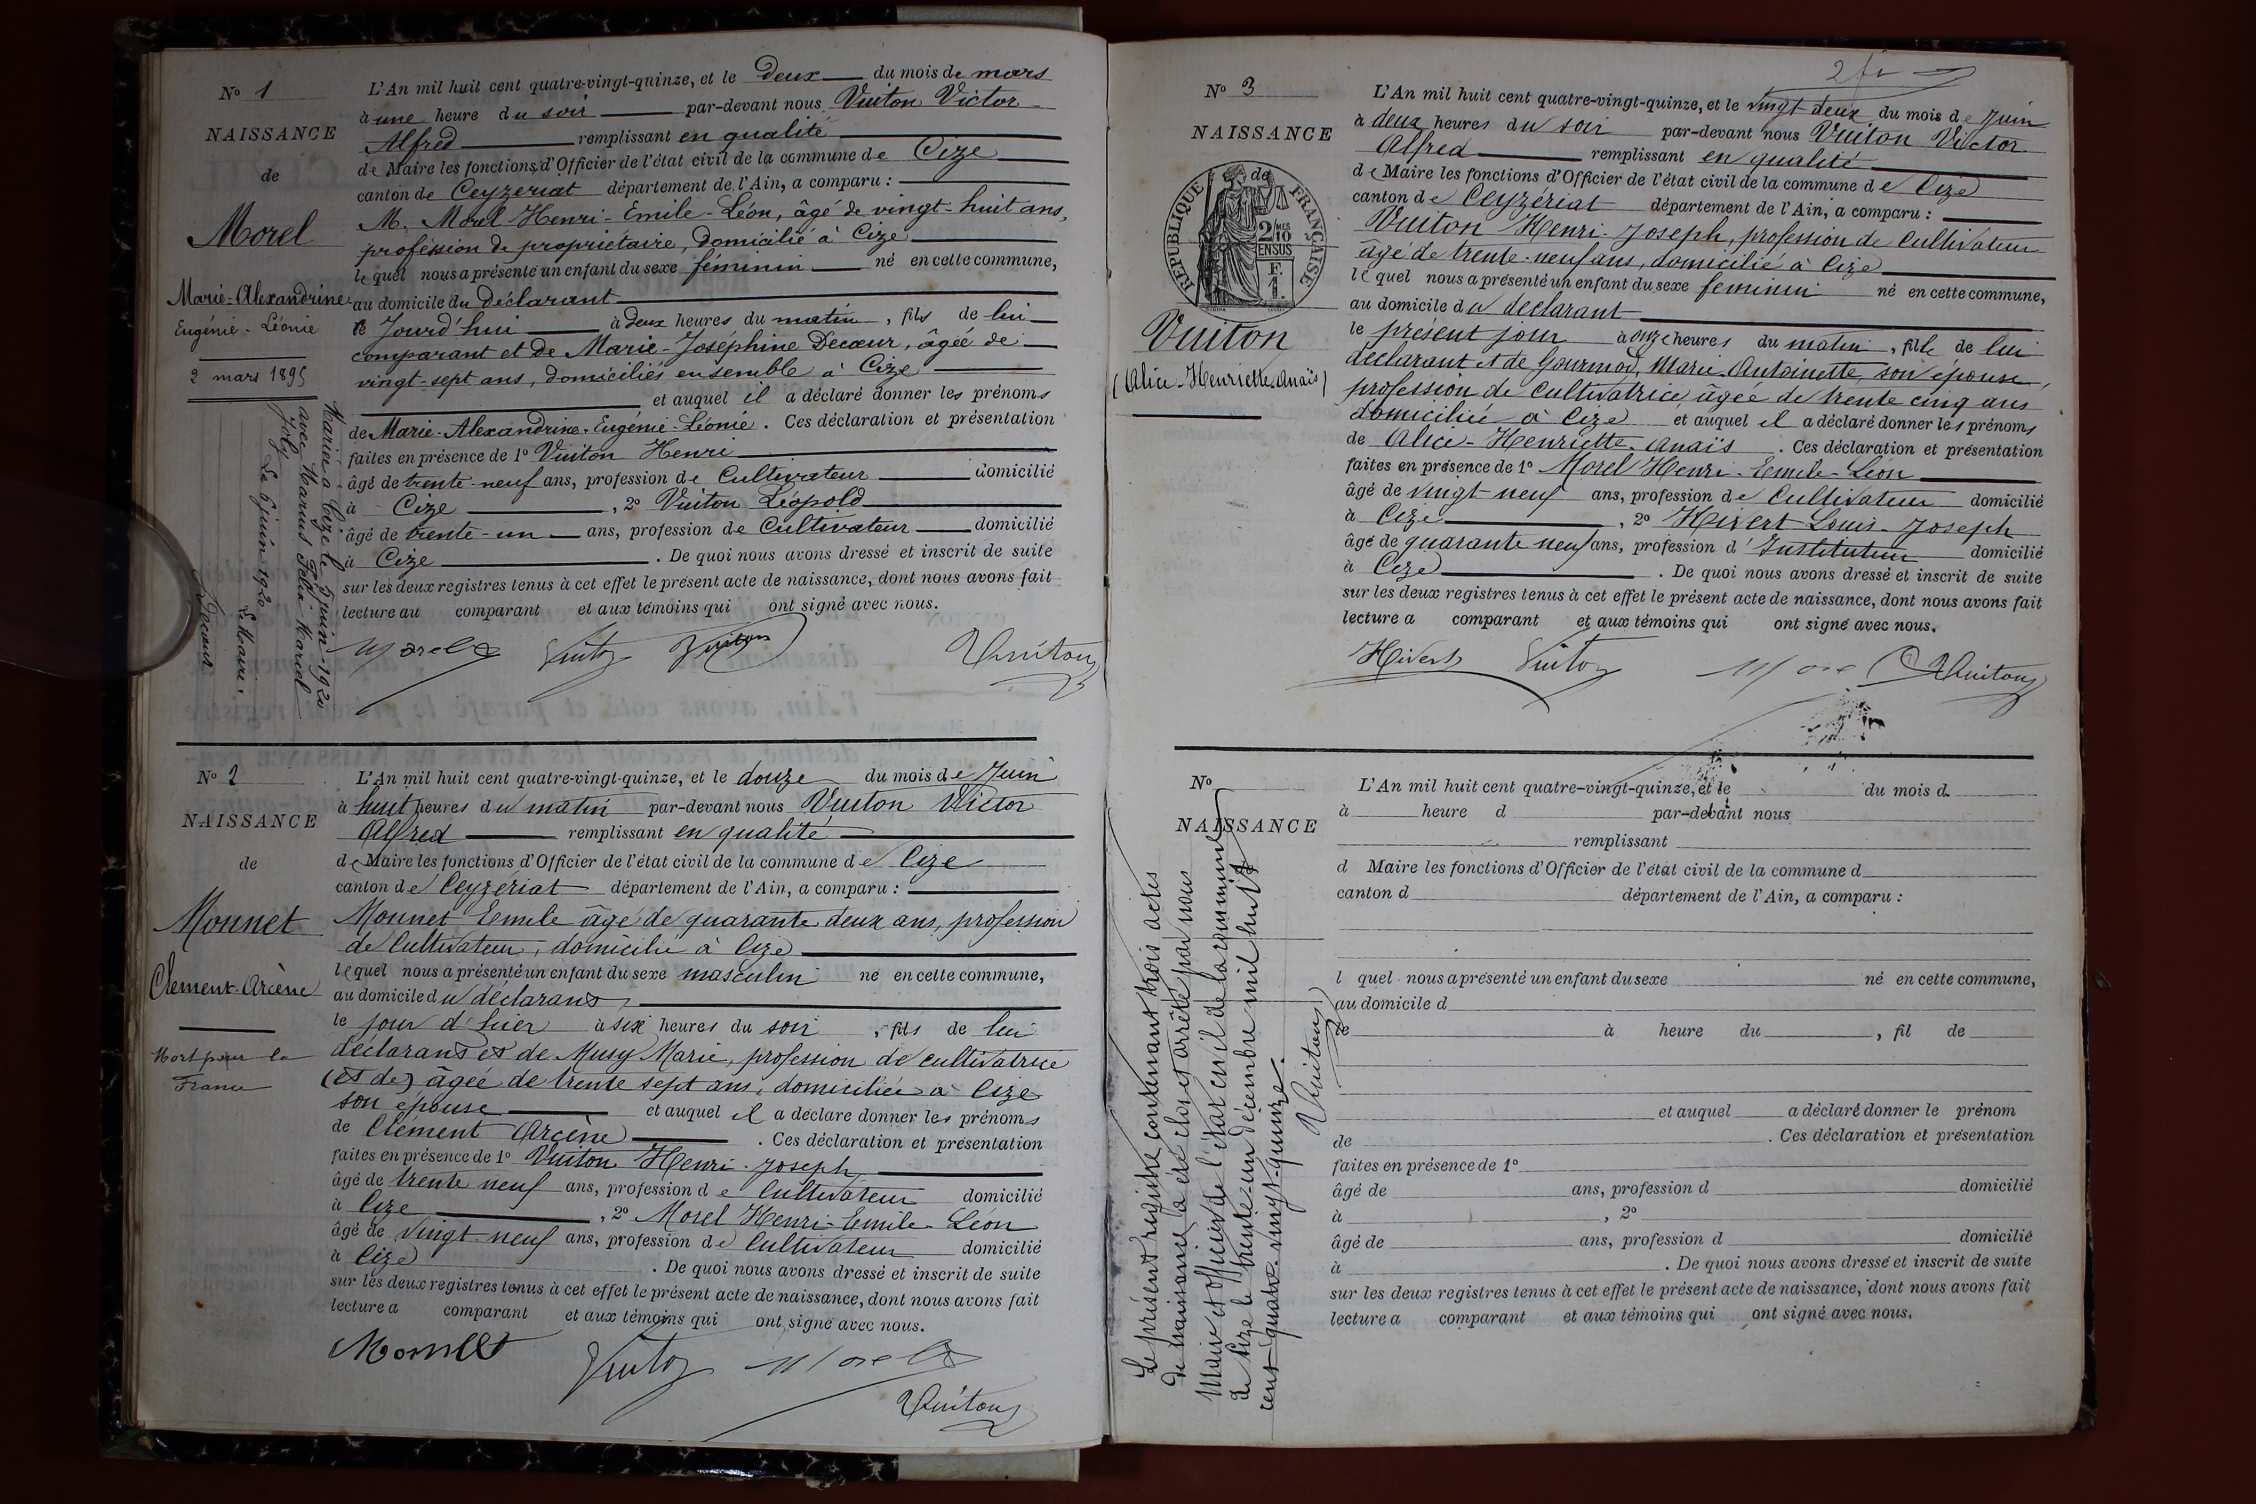 N° 1
NAISSANCE
de
Morel
Marie-Alexandrine
Eugénie-Léonie
2 mars 1895
Mariée à Cize le 5 juin 1920
avec Marius Félix Marcel
Joly
Le 6 juin 1920
Le Maire :
L'An mil huit cent quatre-vingt-quinze, et le deux du mois de mars
à une heure du soir par-devant nous Vuiton Victor
Alfred remplissant en qualité
de Maire les fonctions d'Officier de l'état civil de la commune de Cize
canton de Ceyzeriat département de l'Ain, a comparu :
M. Morel Henri-Emile-Léon, âgé de vingt-huit ans,
profession de propriétaire, domicilié à Cize
lequel nous a présenté un enfant du sexe féminin né en cette commune,
au domicile du Déclarant
le Jourd'hui à deux heures du matin, fils de lui
comparant et de Marie-Joséphine Decœur, âgée de
vingt-sept ans, domiciliés ensemble à Cize
et auquel il a déclaré donner les prénoms
de Marie-Alexandrine-Eugénie-Léonie. Ces déclaration et présentation
faites en présence de 1° Vuiton Henri
âgé de trente-neuf ans, profession de Cultivateur domicilié
à Cize, 2° Vuiton Léopold
âgé de trente-un ans, profession de Cultivateur domicilié
à Cize. De quoi nous avons dressé et inscrit de suite
sur les deux registres tenus à cet effet le présent acte de naissance, dont nous avons fait
lecture au comparant et aux témoins qui ont signé avec nous.
Morel Vuiton Vuiton Vuiton
N° 2
NAISSANCE
de
Monnet
Clement-Arcène
Mort pour la
France
L'An mil huit cent quatre-vingt-quinze, et le douze du mois de Juin
à huit heures du matin par-devant nous Vuiton Victor
Alfred remplissant en qualité
de Maire les fonctions d'Officier de l'état civil de la commune de Cize
canton de Ceyzériat département de l'Ain, a comparu :
Monnet Emile âgé de quarante deux ans, profession
de Cultivateur, domicilié à Cize
lequel nous a présenté un enfant du sexe masculin né en cette commune,
au domicile du déclarant
le jour d'hier à six heures du soir, fils de lui
déclarant et de Musy Marie, profession de cultivatrice
(et de) âgée de trente sept ans, domiciliée à Cize
son épouse et auquel il a déclaré donner les prénoms
de Clément Arcène. Ces déclaration et présentation
faites en présence de 1° Vuiton Henri-Joseph
âgé de trente neuf ans, profession de Cultivateur domicilié
à Cize, 2° Morel Henri-Emile-Léon
âgé de vingt-neuf ans, profession de Cultivateur domicilié
à Cize. De quoi nous avons dressé et inscrit de suite
sur les deux registres tenus à cet effet le présent acte de naissance, dont nous avons fait
lecture a comparant et aux témoins qui ont signé avec nous.
Monnet Vuiton Morel
Vuiton
N° 3
NAISSANCE
de
REPUBLIQUE FRANÇAISE
2/10 MES
EN SUS
F.
1.
Vuiton
(Alice-Henriette-Anaïs)
L'An mil huit cent quatre-vingt-quinze, et le vingt-deux du mois de Juin
à deux heures du soir par-devant nous Vuiton Victor
Alfred remplissant en qualité
de Maire les fonctions d'Officier de l'état civil de la commune de Cize
canton de Ceyzériat département de l'Ain, a comparu :
Vuiton Henri-Joseph, profession de Cultivateur
âgé de trente-neuf ans, domicilié à Cize
lequel nous a présenté un enfant du sexe féminin né en cette commune,
au domicile du déclarant
le présent jour à onze heures du matin, fille de lui
déclarant et de Gourmod, Marie-Antoinette, son épouse,
profession de Cultivatrice âgée de trente cinq ans
domiciliée à Cize et auquel il a déclaré donner les prénoms
de Alice-Henriette-Anaïs. Ces déclaration et présentation
faites en présence de 1° Morel Henri-Emile-Léon
âgé de vingt-neuf ans, profession de Cultivateur domicilié
à Cize, 2° Hivert Louis-Joseph
âgé de quarante neuf ans, profession d'Instituteur domicilié
à Cize. De quoi nous avons dressé et inscrit de suite
sur les deux registres tenus à cet effet le présent acte de naissance, dont nous avons fait
lecture a comparant et aux témoins qui ont signé avec nous.
Hivert Vuiton Morel Vuiton
N°
NAISSANCE
Le présent registre contenant trois actes
de naissance a été clos et arrêté par nous
Maire et officier de l'état civil de la commune
de Cize le trente-un décembre mil huit
cent quatre-vingt-quinze.
Vuiton
L'An mil huit cent quatre-vingt-quinze, et le du mois d
à heure d par-devant nous
remplissant
d Maire les fonctions d'Officier de l'état civil de la commune d
canton d département de l'Ain, a comparu :
l quel nous a présenté un enfant du sexe né en cette commune,
au domicile d
le à heure du , fil de
et auquel a déclaré donner le prénom
de . Ces déclaration et présentation
faites en présence de 1°
âgé de ans, profession d domicilié
à , 2°
âgé de ans, profession d domicilié
à . De quoi nous avons dressé et inscrit de suite
sur les deux registres tenus à cet effet le présent acte de naissance, dont nous avons fait
lecture a comparant et aux témoins qui ont signé avec nous.